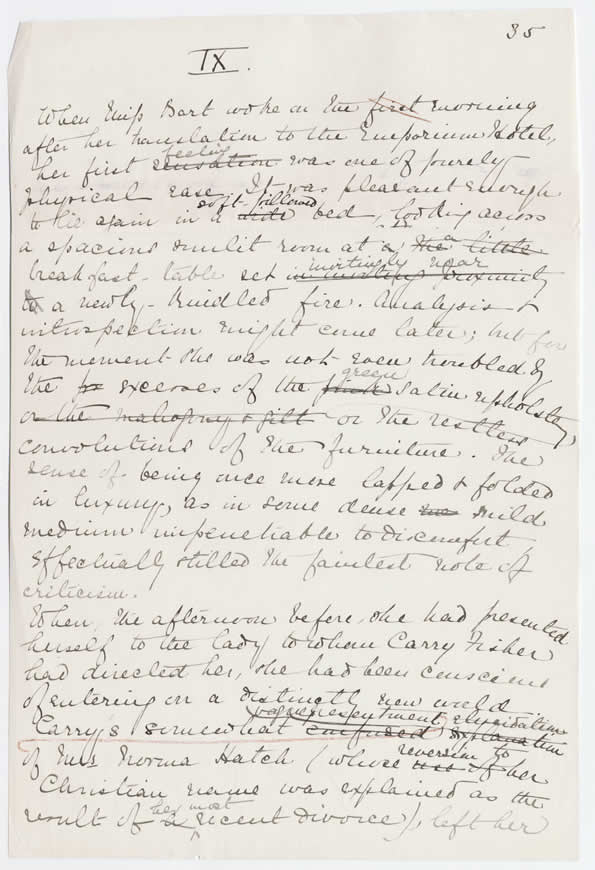 35
IX.
When Miss Bart woke on the first morning
after her translation to the Emporium Hotel,
feeling
her first sensation was one of purely
physical ease. It was pleasant enough
soft-pillowed
to lie again in a wide bed, looking across
a spacious sunlit room at a the little
invitingly near
breakfast-table set in inviting proximity
to a newly-kindled fire. Analysis &
introspection might come later; but for
the moment she was not even troubled by
green
the excesses of the satin upholstery,
or the mahogany & gilt or the restless
convolutions of the furniture. The
sense of being once more lapped & folded
in luxury, as in some dense mild
medium impenetrable to discomfort
effectually stilled the faintest note of
criticism.
When, the afternoon before, she had presented
herself to the lady to whom Carry Fisher
had directed her, she had been conscious
of entering on a distinctly new world.
vague presentment, elucidation
Carry's somewhat confused explanation
reversion to
of Mrs Norma Hatch (whose use of her
Christian name was explained as the
her most
result of a recent divorce), left her